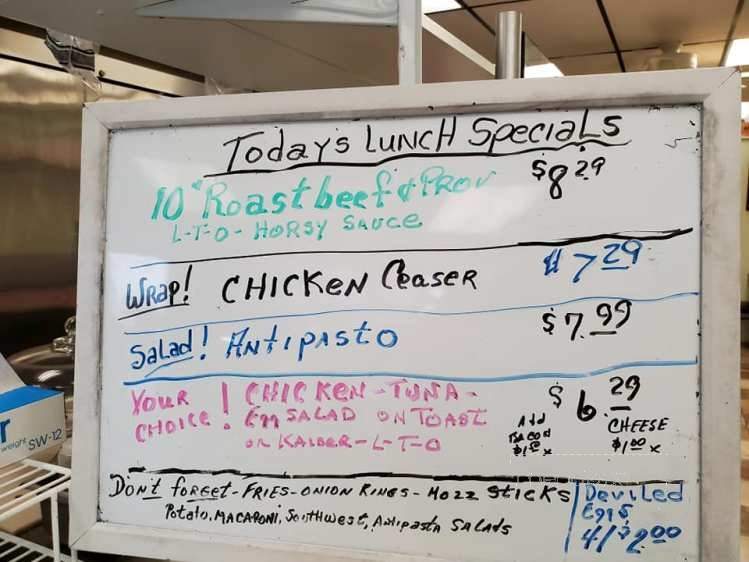 Today's LUNCH SpeciaLS
10" Roast beef & PROV $8 29
L-T-O- HORSY SAUCe
WRap! CHICKeN CeaSER $7 29
SaLad! ANtipasto $7.99
YOUR CHOICE! CHICKEN-TUNA- $6.29
Egg SALAD ON TOAST
OR KAISER-L-T-O
Add BACON $1.50 x
CHEESE $1.00 x
DON't foRGet-FRIES-ONION RINGS-MOZZ StiCKS
Potato, MACARONI, Southwest, Antipasta SALADS
DeviLed
Eggs
4/$2.00
weight SW-12